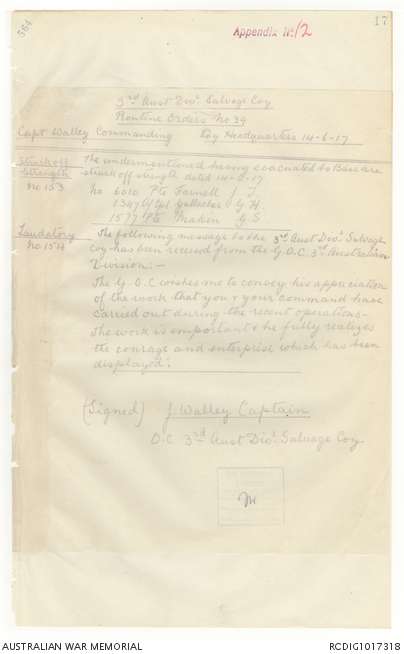 564
Appendix No 12
17
3rd Aust Divl Salvage Coy
Routine Orders No 39
Capt Walley Commanding Coy Headquarters 14-6-17
Struck off Strength No 153
The undermentioned having evacuated to Base are
struck off strength dated 14-6-17
No 6010 Pte Farnell J. T.
1347 Gallacher G. H.
1577 Pte Makin G S.
Laudatory No 154
The following message to the 3rd Aust Divl Salvage
Coy has been received from the G.O.C. 3rd Australian
Division:-
The G.O.C wishes me to convey his appreciation
of the work that you & your command have
carried out during the recent operations-
The work is important & he fully realizes
the courage and enterprise which has been
displayed.
(Signed) J Walley Captain
O.C. 3rd Aust Divl Salvage Coy
AUSTRALIAN WAR MEMORIAL
RCDIG1017318